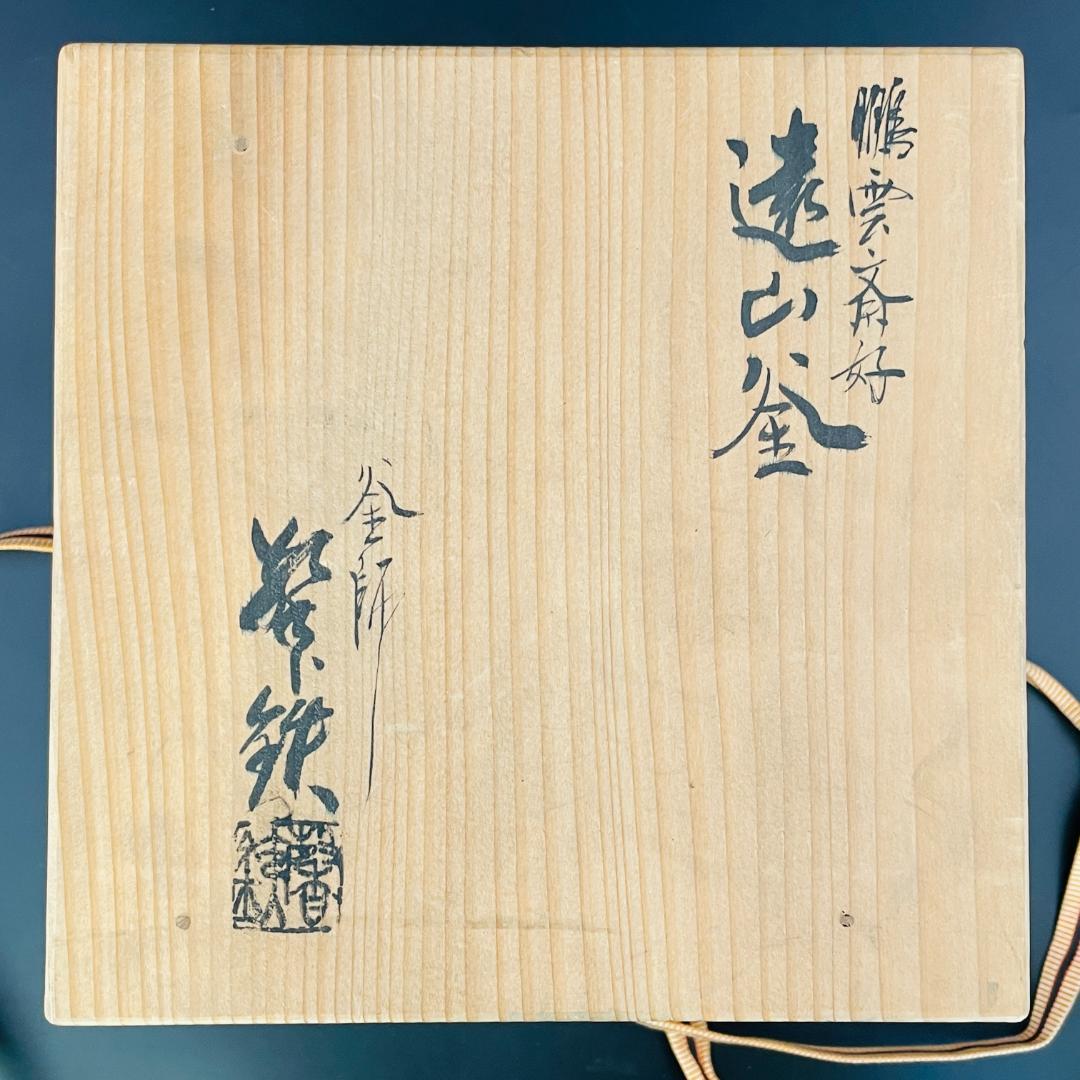 鵬雲斎好
遠山釜
釜師
鉄